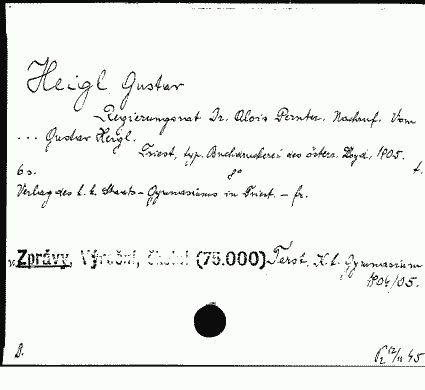 Heigl Gustav
Regierungsrat Dr. Alois Pernter. Nachruf. Vom
... Gustav Heigl.
Triest, typ. Buchdruckerei des österr. Lloyd, 1905.
6 s. 8° t.
Verlag des k. k. Staats-Gymnasiums in Triest. – br.
v: Zprávy, Výroční, školní (75.000) Terst. K. k. Gymnasium
1904/05.
B.